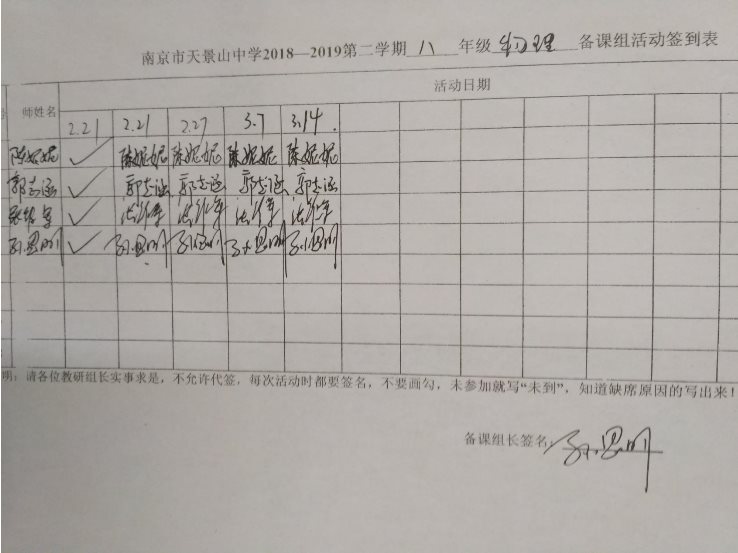 南京市天景山中学2018—2019第二学期 八 年级 物理 备课组活动签到表
师姓名 活动日期
2.21 2.21 2.27 3.7 3.14.
陈妮妮 ✓ 陈妮妮 陈妮妮 陈妮妮 陈妮妮
郭志涵 ✓ 郭志涵 郭志涵 郭志涵 郭志涵
✓
孙思明 ✓ 孙思明 孙思明 孙思明 孙思明
明：请各位教研组长实事求是，不允许代签，每次活动时都要签名，不要画勾，未参加就写“未到”，知道缺席原因的写出来！
备课组长签名：孙思明